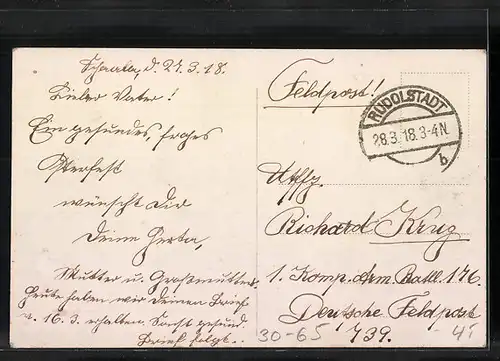 Schaala, d. 27.3.18.
Lieber Vater!
Ein gesundes, frohes
Osterfest
wünscht Dir
Deine Herta,
Mutter u. Großmutter.
Heute haben wir Deinen Brief
v. 16.3. erhalten. Sonst gesund.
Brief folgt.
Feldpost!
RUDOLSTADT
28.3.18.3-4N.
b
Uffz.
Richard Krug
1. Komp. Batl. 176.
Deutsche Feldpost
739.
30-65